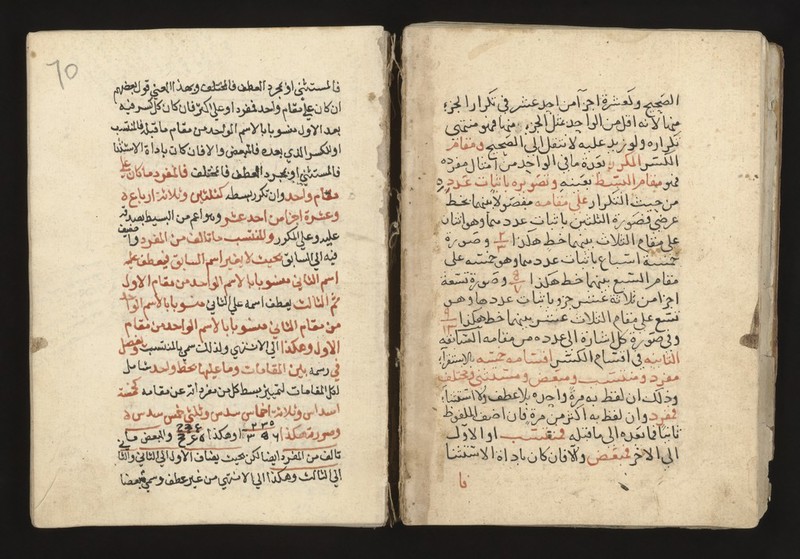 الصحيح وكعشرة اجزآ من احد عشر في تكرار الجزء
منها لانه اقل من الواحد بمثل الجزء منها فهو منتهى
تكراره ولو زيد عليه لانتقل الى الصحيح ومقام
الكسر المكرر بعدة ما في الواحد من امثال مفرده
فهو مقام البسيط بعينه وتصويره باثبات عدده
من حيث التكرار على مقامه مفصولا بينهما بخط
عرضي فصورة الثلثين باثبات عددهما وهو اثنان
على مقام الثلاث بينهما خط هكذا ٢/٣ وصورة
خمسة اسباع باثبات عددها وهو خمسة على
مقام السبع بينهما خط هكذا ٥/٧ وصورة تسعة
اجزآ من ثلاثة عشر جزو باثبات عددها وهو
تسع على مقام الثلاث عشر بينهما خط هكذا ٩/١٣
وفي صورة كل اشارة الى عدده من مقامه السابقة
الثانية في اقسام الكسر اقسامه خمسة بالاستقراء
مفرد ومنتسب ومبعض ومستثنى ومختلف
وذلك ان لفظ به مرة واحدة بلا عطف ولا استثناء
فمفرد وان لفظ به اكثر من مرة فان اضيف الملفوظ
ثانيا فما بعده الى ما قبله فمنتسب او الاول
الى الاخر فمبعض والا فان كان باداة الاستثنا
فا
70
فالمستثنى او بمجرد العطف فالمختلف وبهذا المعنى قول بعضهم
ان كان على مقام واحد فمفرد او على اكثر فان كان كل كسر فيه
بعد الاول منسوبا بالاسم الواحد من مقام ما قبله فالمنتسب
او للكسر الذي بعده فالمبعض والا فان كان باداة الاستثنا
فالمستثنى او بمجرد العطف فالمختلف فالمفرد ما كان على
مقام واحد وان تكرر بسطه كثلثين وثلاثة ارباع
وعشرة اجزا من احد عشر وهو اعم من البسيط بصدقه
عليه وعلى المكرر والمنتسب ما تالف من المفرد واضيف
فيه الى السابق بحيث لا يغير اسم السابق فيعطف على
اسم الثاني منسوبا بالاسم الواحد من مقام الاول
ثم الثالث يعطف اسمه على الثاني منسوبا بالاسم الواحد
من مقام الثاني منسوبا بالاسم الواحد من مقام
الاول وهكذا الى الانتهى ولذلك سمي بالمنتسب ويفصل
في رسمه بين المقامات وما عليها بخط واحد شامل
لكل المقامات لتمييز بسط كل من مفرداته عن مقامه كخمسة
اسداس وثلاثة اخماس سدس وثلثي خمس سدس
وصورته هكذا او هكذا والمبعض ما
تالف من المفرد ايضا لكن بحيث يضاف الاول الى الثاني والثاني
الى الثالث وهكذا الى الانتهى من غير عطف وسمي مبعضا